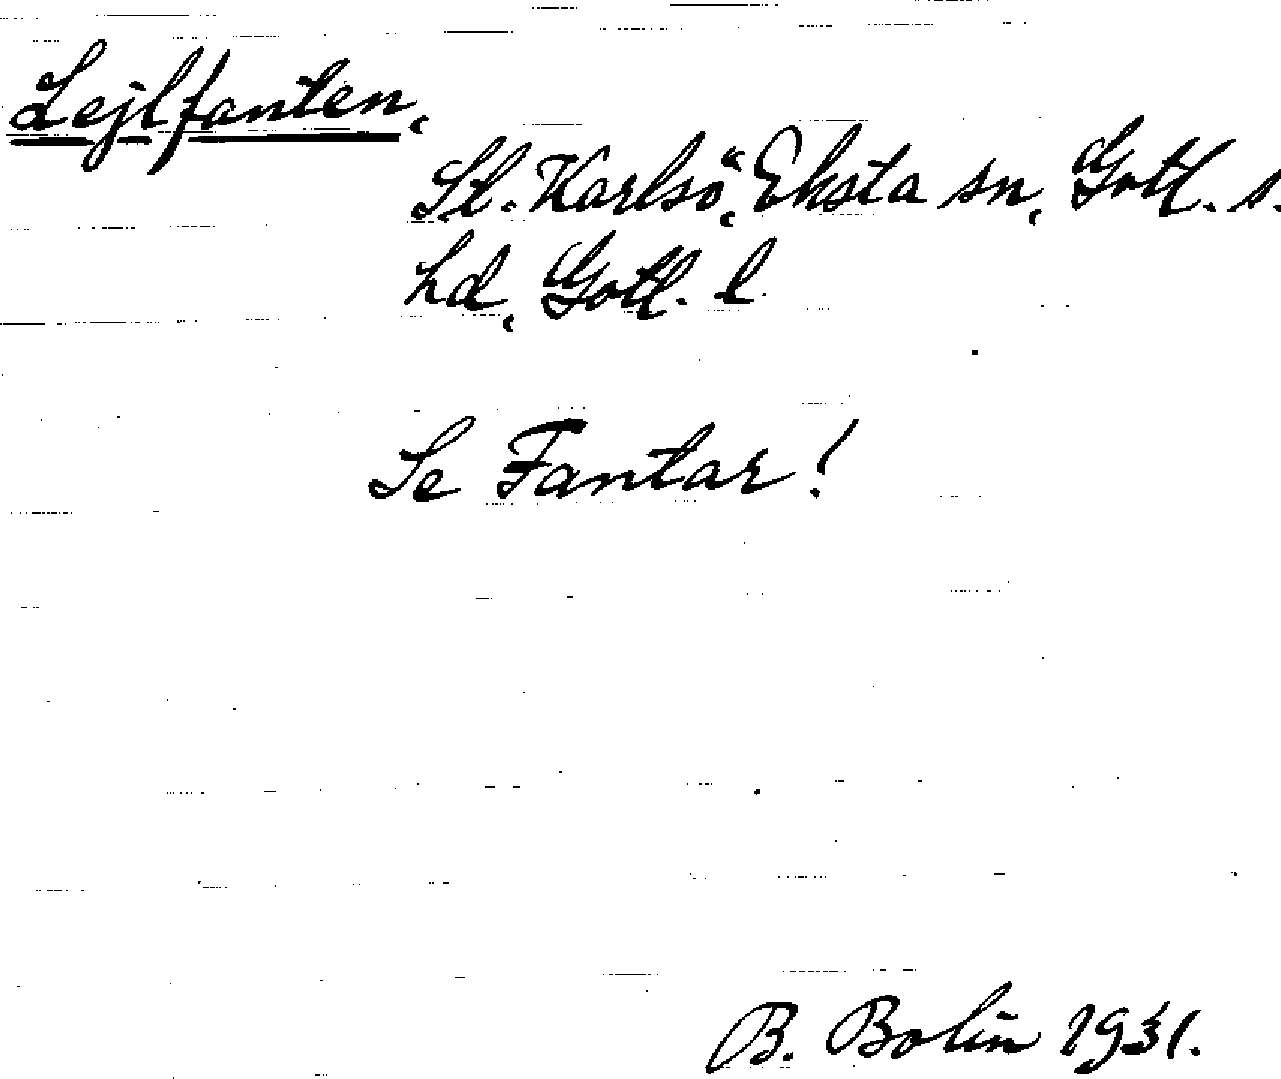 Lejlfanten,
St. Karlsö, Eksta sn, Gotl. s.
hd, Gotl. l.
Se Fantar!
B. Bolin 1931.